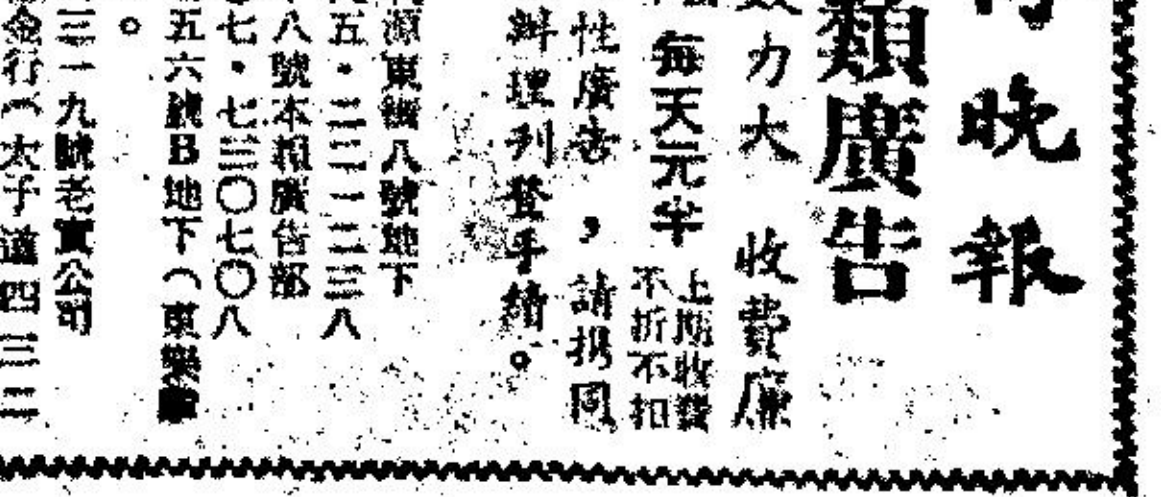 晚報
類廣告
力大 收費廉
每天元半
上期收費
不折不扣
性廣告,請携同
辦理刋登手續。
源東街八號地下
五・二二一二三八
八號本報廣告部
七・七三〇七〇八
五六號B地下(東樂
。
三一九號老實公司
金行(太子道四三二